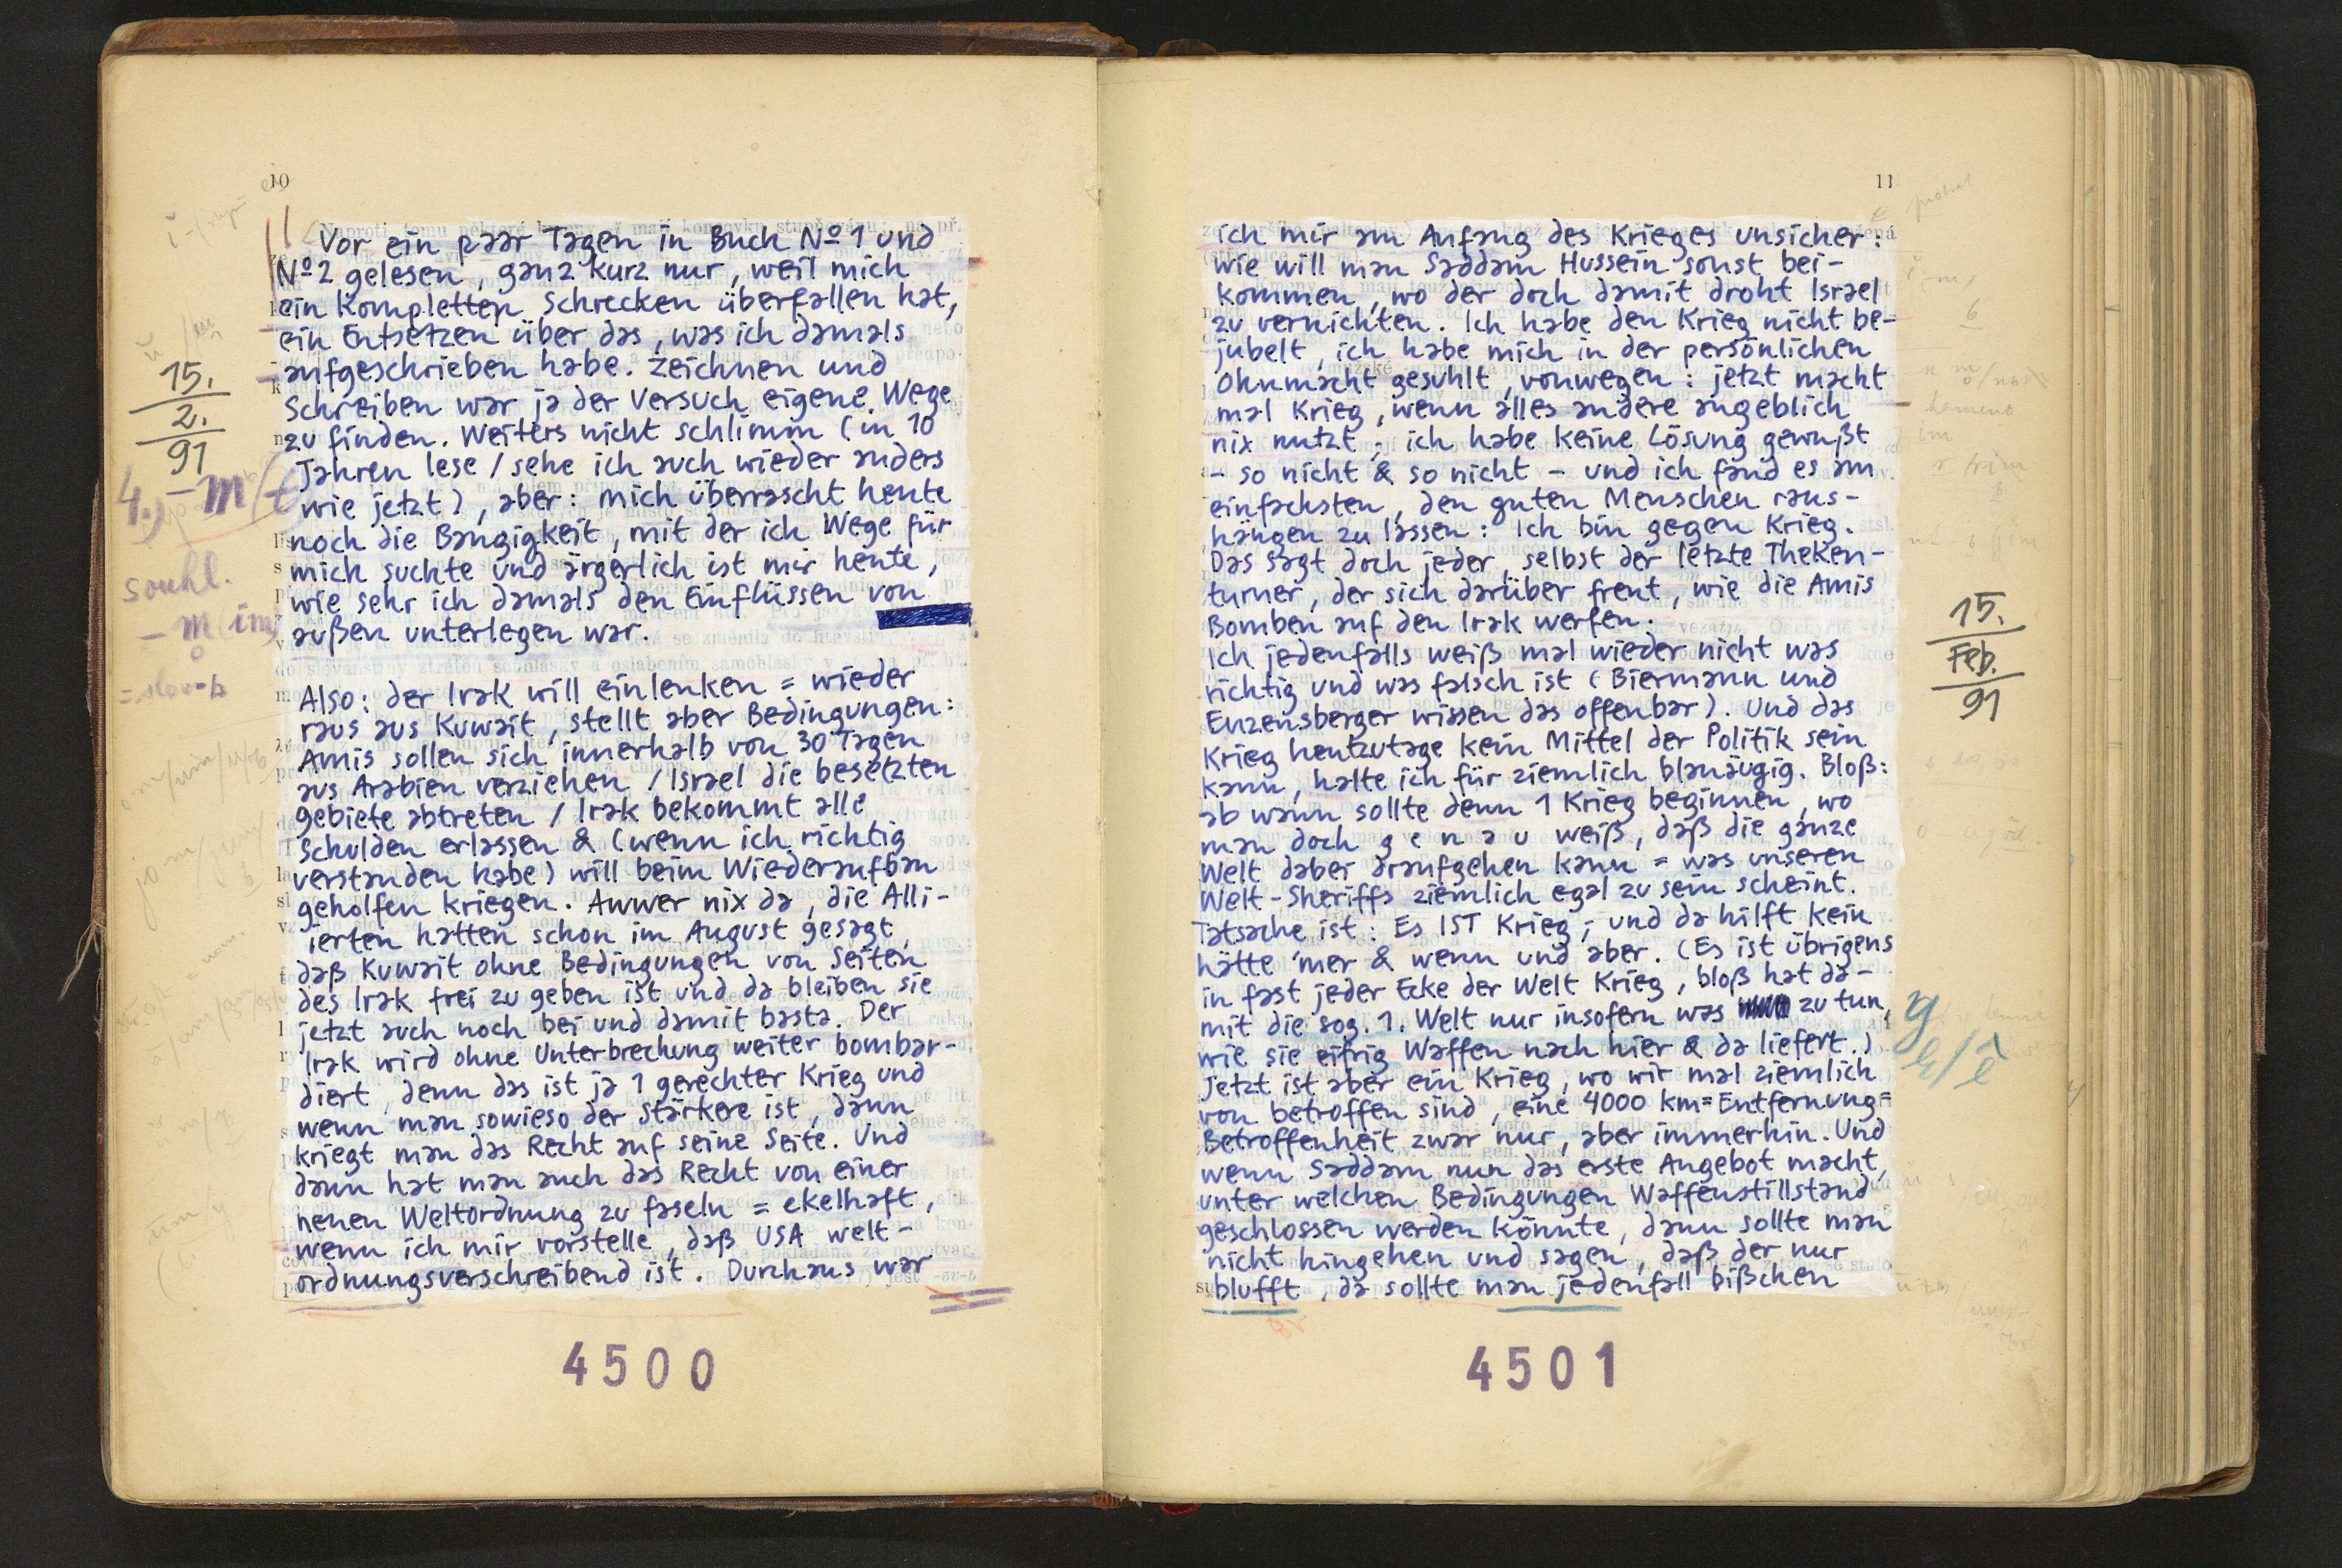 10
15.
2.
91
4.) - m (
souhl.
- m (im)
Vor ein paar Tagen in Buch Nº 1 und
Nº 2 gelesen, ganz kurz nur, weil mich
ein kompletten Schrecken überfallen hat,
ein Entsetzen über das, was ich damals
aufgeschrieben habe. Zeichnen und
Schreiben war ja der Versuch eigene Wege
zu finden. Weiters nicht schlimm (in 10
Jahren lese / sehe ich auch wieder anders
wie jetzt), aber: mich überrascht heute
noch die Bangigkeit, mit der ich Wege für
mich suchte und ärgerlich ist mir heute,
wie sehr ich damals den Einflüssen von
außen unterlegen war.
Also: der Irak will einlenken = wieder
raus aus Kuwait, stellt aber Bedingungen:
Amis sollen sich innerhalb von 30 Tagen
aus Arabien verziehen / Israel die besetzten
Gebiete abtreten / Irak bekommt alle
Schulden erlassen & (wenn ich richtig
verstanden habe) will beim Wiederaufbau
geholfen kriegen. Awwer nix da, die Alli-
ierten hatten schon im August gesagt,
daß Kuwait ohne Bedingungen von Seiten
des Irak frei zu geben ist und da bleiben sie
jetzt auch noch bei und damit basta. Der
Irak wird ohne Unterbrechung weiter bombar-
diert, denn das ist ja 1 gerechter Krieg und
wenn man sowieso der Stärkere ist, dann
kriegt man das Recht auf seine Seite. Und
dann hat man auch das Recht von einer
neuen Weltordnung zu faseln = ekelhaft,
wenn ich mir vorstelle, daß USA welt-
ordnungsverschreibend ist. Durchaus war
4500
11
ich mir am Anfang des Krieges unsicher:
wie will man Saddam Hussein sonst bei-
kommen, wo der doch damit droht Israel
zu vernichten. Ich habe den Krieg nicht be-
jubelt, ich habe mich in der persönlichen
Ohnmacht gesuhlt, vonwegen: jetzt macht
mal Krieg, wenn alles andere angeblich
nix nutzt; ich habe keine Lösung gewußt
- so nicht & so nicht - und ich fand es am
einfachsten, den guten Menschen raus-
hängen zu lassen: Ich bin gegen Krieg.
Das sagt doch jeder, selbst der letzte Theken-
turner, der sich darüber freut, wie die Amis
Bomben auf den Irak werfen.
Ich jedenfalls weiß mal wieder nicht was
richtig und was falsch ist (Biermann und
Enzensberger wissen das offenbar). Und das
Krieg heutzutage kein Mittel der Politik sein
kann, halte ich für ziemlich blauäugig. Bloß:
ab wann sollte denn 1 Krieg beginnen, wo
man doch g e n a u weiß, daß die ganze
Welt dabei draufgehen kann = was unseren
Welt-Sheriffs ziemlich egal zu sein scheint.
Tatsache ist: Es IST Krieg; und da hilft kein
hätte 'mer & wenn und aber. (Es ist übrigens
in fast jeder Ecke der Welt Krieg, bloß hat da-
mit die sog. 1. Welt nur insofern was zu tun,
wie sie eifrig Waffen nach hier & da liefert.)
Jetzt ist aber ein Krieg, wo wir mal ziemlich
von betroffen sind, eine 4000 km=Entfernung=
Betroffenheit zwar nur, aber immerhin. Und
wenn Saddam nun das erste Angebot macht,
unter welchen Bedingungen Waffenstillstand
geschlossen werden könnte, dann sollte man
nicht hingehen und sagen, daß der nur
blufft, da sollte man jedenfall bißchen
15.
Feb.
91
4501